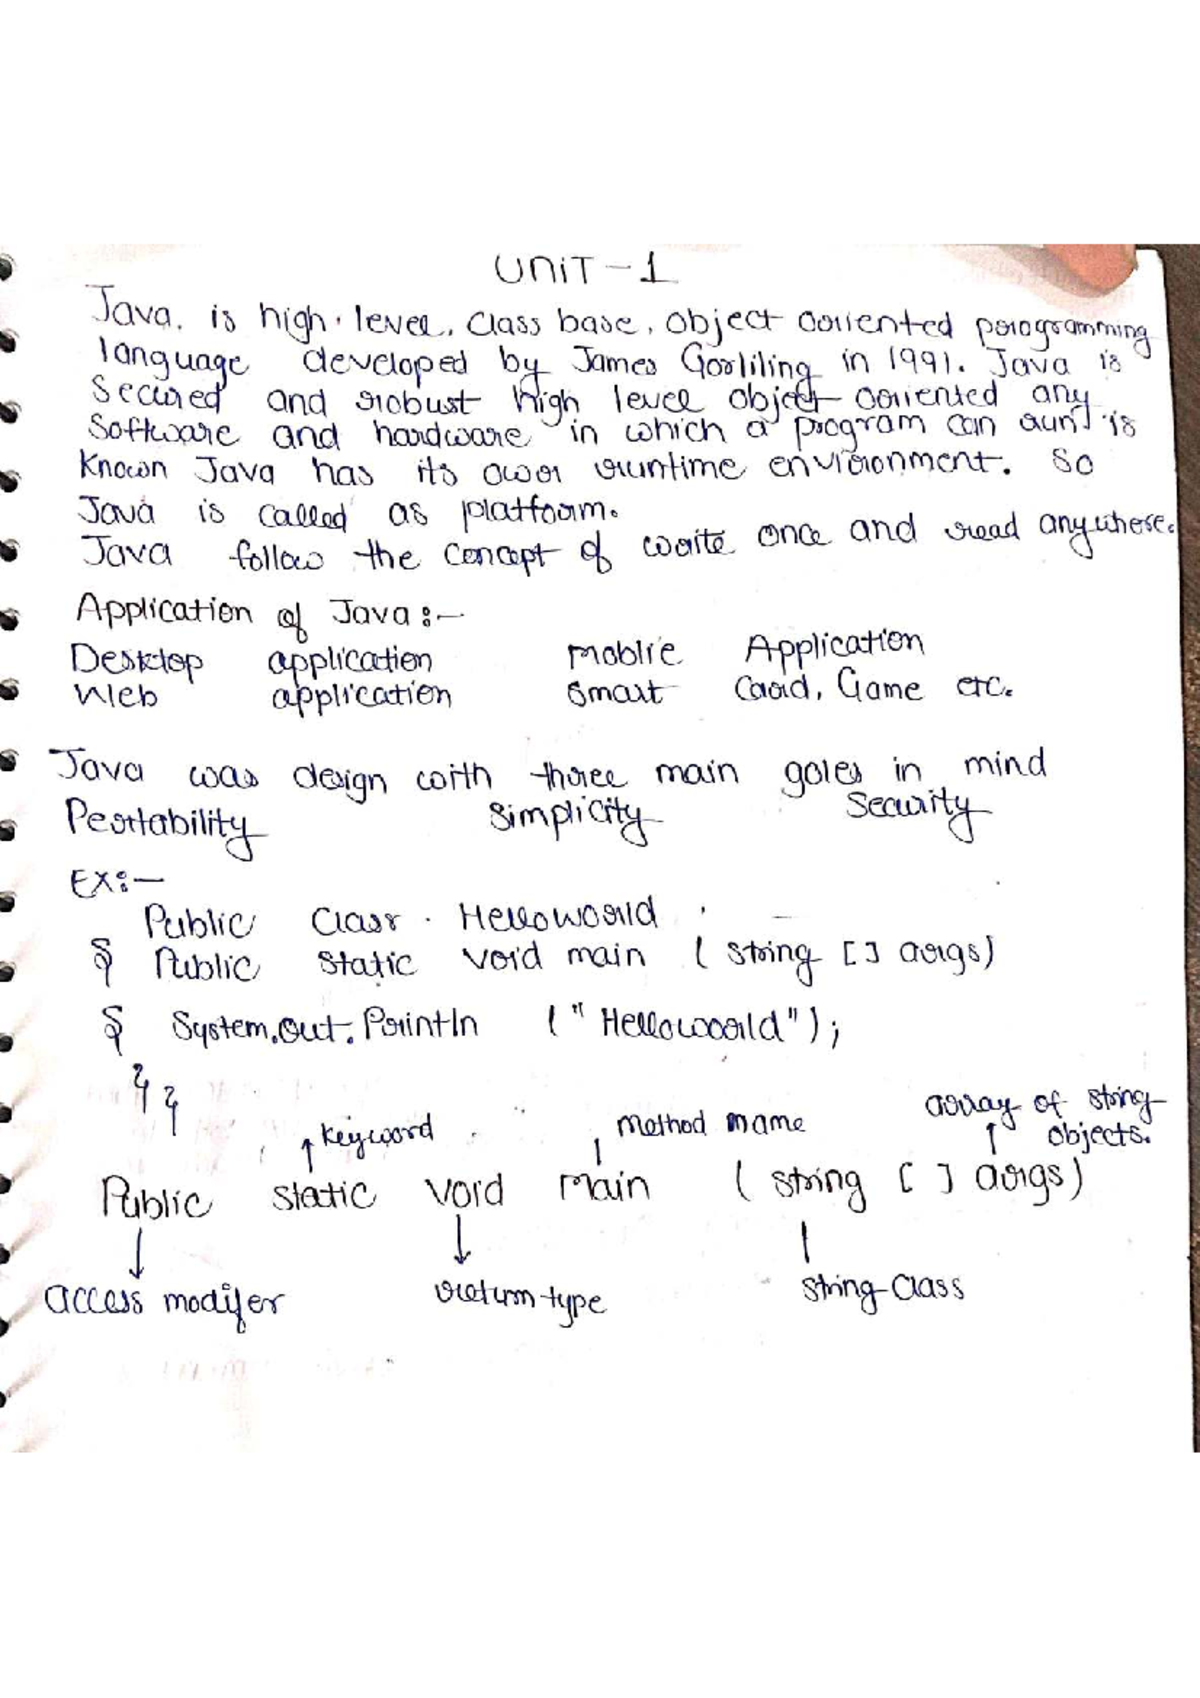 UNIT - 1
Java. is high. level, Class base, Object oriented programming
language developed by James Gorliling in 1991. Java is
Secured and robust high level object oriented any
Software and hardware in which a program can run is
Known Java has its own runtime environment. So
Java is called as platform.
Java follow the concept of write once and read anywhere.
Application of Java :-
Desktop application Moblie Application
Web application Smart Card, Game etc.
Java was design with three main goles in mind
Portability Simplicity Security
EX:-
Public Class Helloworld
{ Public static void main ( string [ ] args)
{ System.out.Println (" Helloworld");
} }
keyword method name array of string
objects.
Public static void main ( string [ ] args)
access modifer return type string class